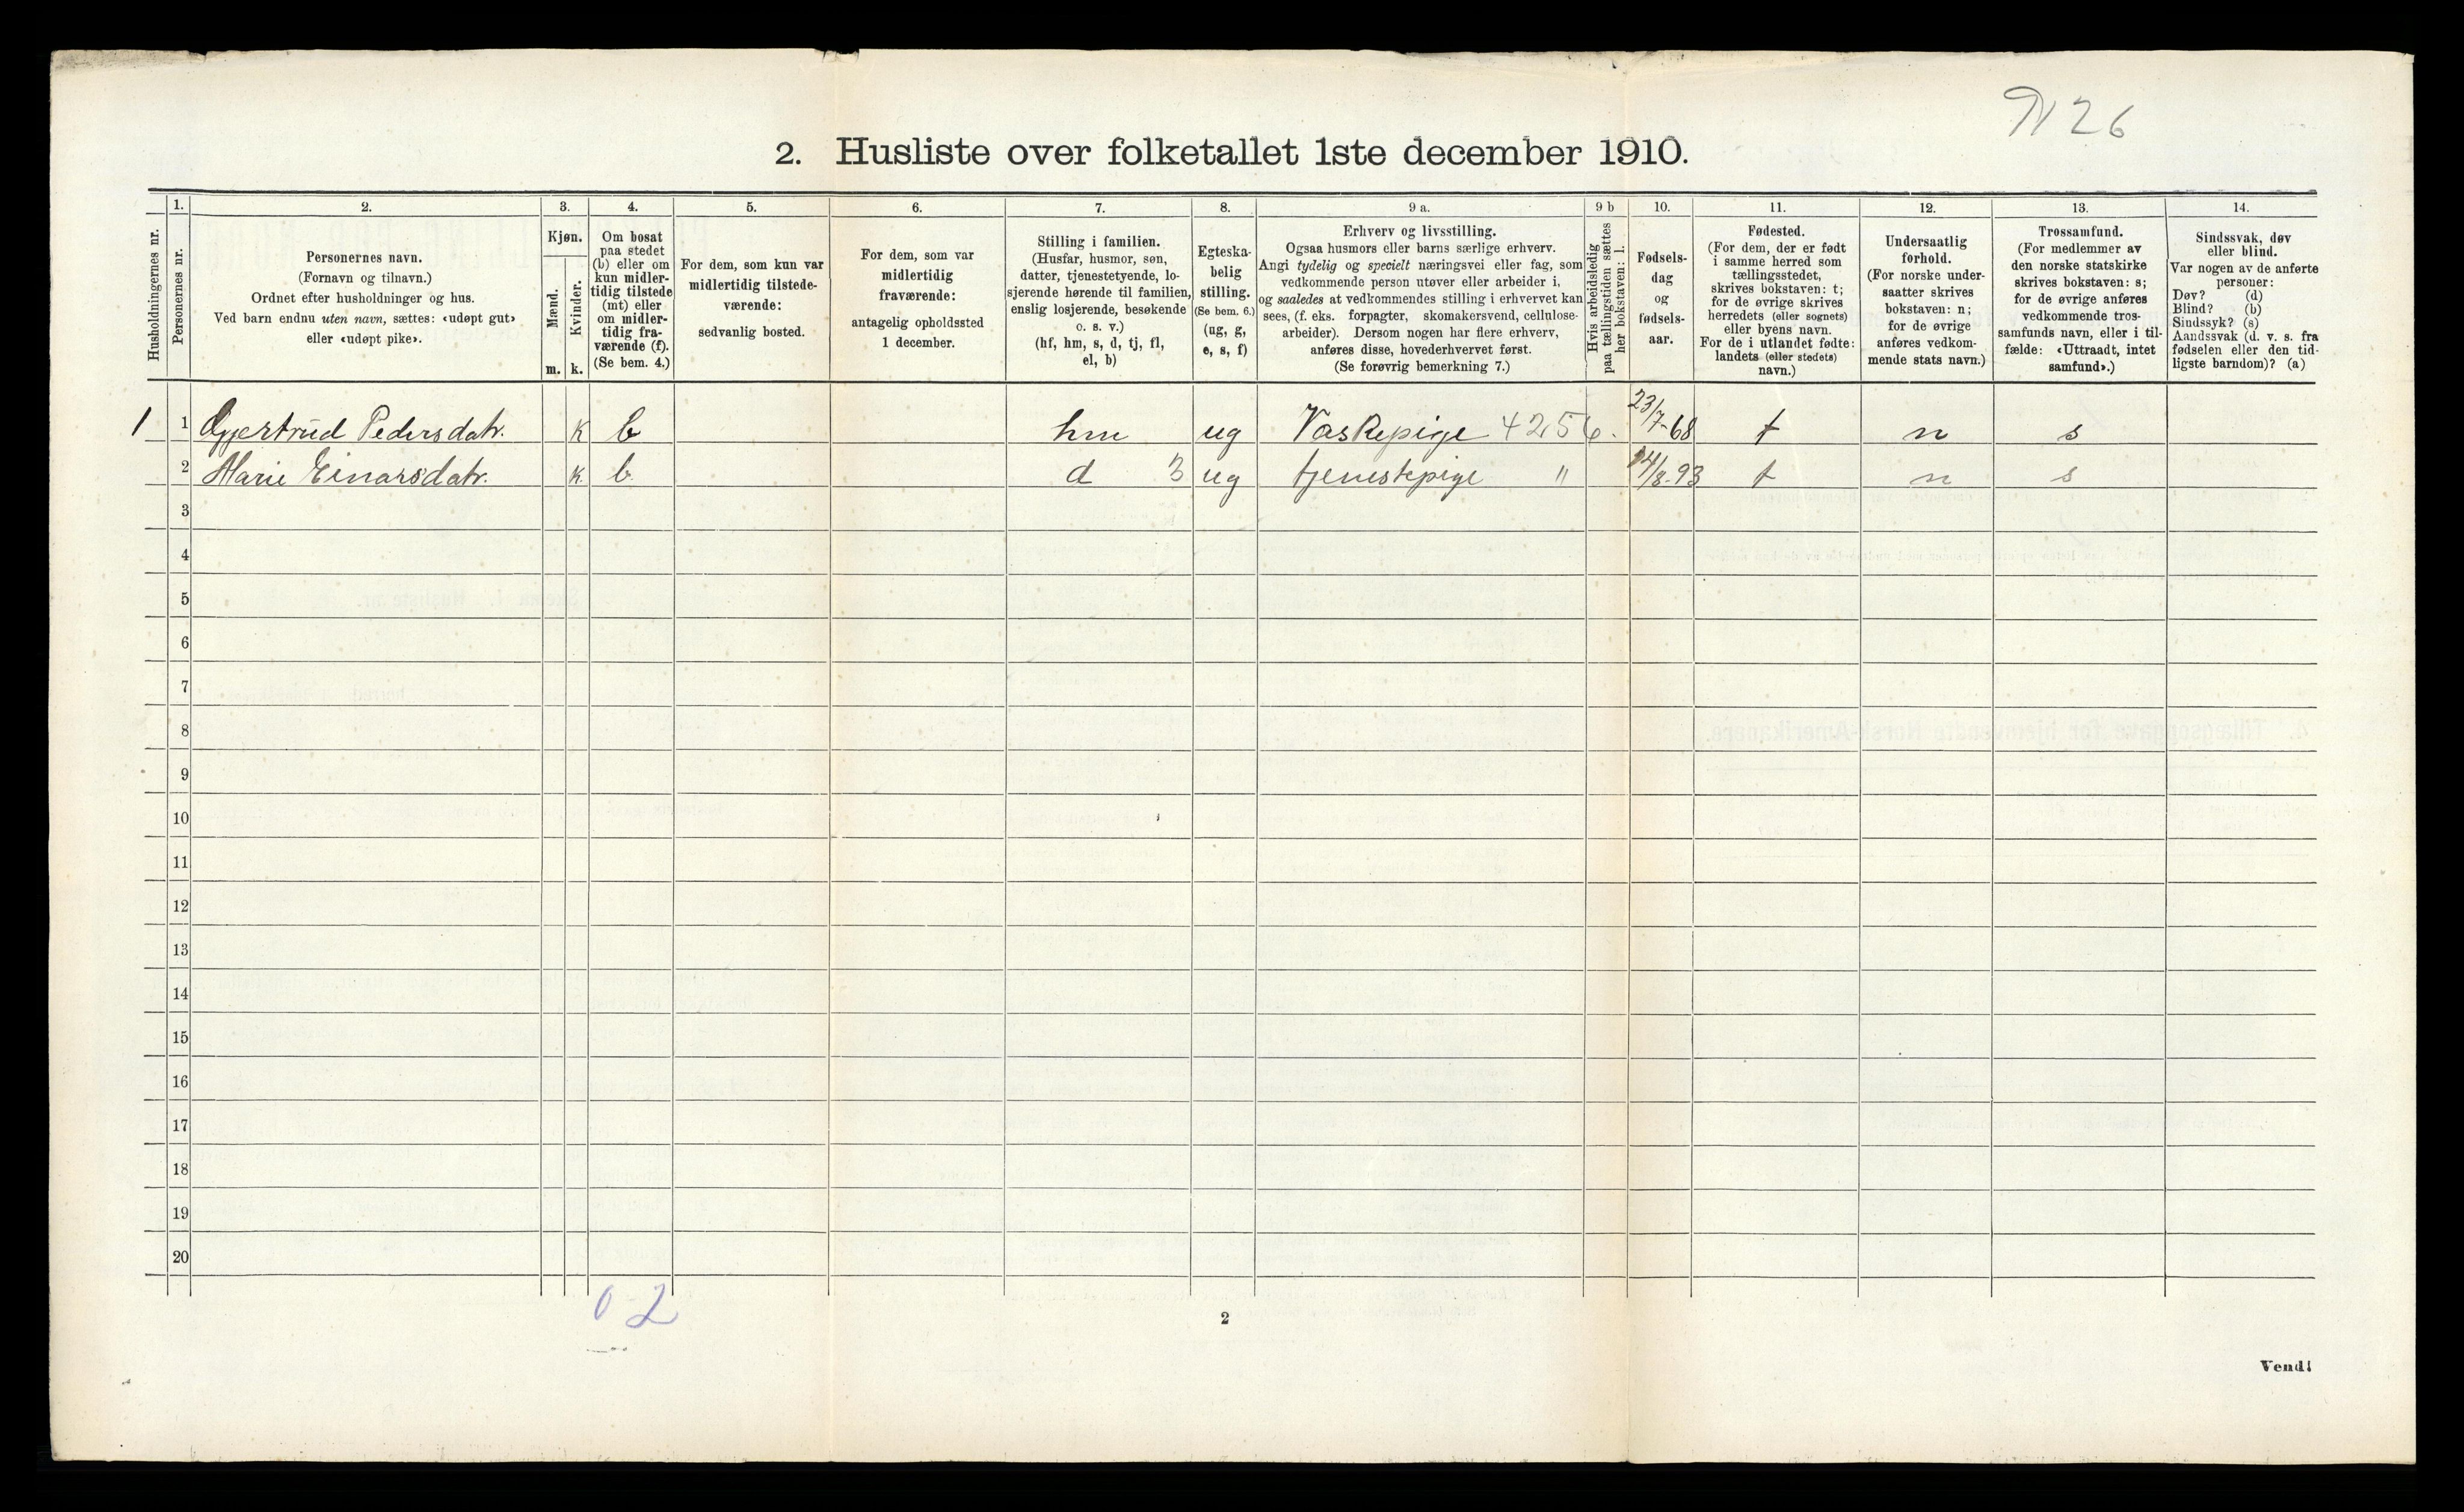 N 26
2. Husliste over folketallet 1ste december 1910.
Husholdningernes nr.
1.
Personernes nr.
2.
Personernes navn.
(Fornavn og tilnavn.)
Ordnet efter husholdninger og hus.
Ved barn endnu uten navn, sættes: «udøpt gut»
eller «udøpt pike».
3.
Kjøn.
Mænd.
Kvinder.
m. k.
4.
Om bosat
paa stedet
(b) eller om
kun midler-
tidig tilstede
(mt) eller
om midler-
tidig fra-
værende (f).
(Se bem. 4.)
5.
For dem, som kun var
midlertidig tilstede-
værende:
sedvanlig bosted.
6.
For dem, som var
midlertidig
fraværende:
antagelig opholdssted
1 december.
7.
Stilling i familien.
(Husfar, husmor, søn,
datter, tjenestetyende, lo-
sjerende hørende til familien,
enslig losjerende, besøkende
o. s. v.)
(hf, hm, s, d, tj, fl,
el, b)
8.
Egteska-
belig
stilling.
(Se bem. 6.)
(ug, g,
e, s, f)
9 a.
Erhverv og livsstilling.
Ogsaa husmors eller barns særlige erhverv.
Angi tydelig og specielt næringsvei eller fag, som
vedkommende person utøver eller arbeider i,
og saaledes at vedkommendes stilling i erhvervet kan
sees, (f. eks. forpagter, skomakersvend, cellulose-
arbeider). Dersom nogen har flere erhverv,
anføres disse, hovederhvervet først.
(Se forøvrig bemerkning 7.)
9 b
Hvis arbeidsledig
paa tællingstiden sættes
her bokstaven: l.
10.
Fødsels-
dag
og
fødsels-
aar.
11.
Fødested.
(For dem, der er født
i samme herred som
tællingsstedet,
skrives bokstaven: t;
for de øvrige skrives
herredets (eller sognets)
eller byens navn.
For de i utlandet fødte:
landets (eller stedets)
navn.)
12.
Undersaatlig
forhold.
(For norske under-
saatter skrives
bokstaven: n;
for de øvrige
anføres vedkom-
mende stats navn.)
13.
Trossamfund.
(For medlemmer av
den norske statskirke
skrives bokstaven: s;
for de øvrige anføres
vedkommende tros-
samfunds navn, eller i til-
fælde: «Uttraadt, intet
samfund».)
14.
Sindssvak, døv
eller blind.
Var nogen av de anførte
personer:
Døv? (d)
Blind? (b)
Sindssyk? (s)
Aandssvak (d. v. s. fra
fødselen eller den tid-
ligste barndom)? (a)
1 1 Gjertrud Pedersdatr. k b hm ug Vaskepige 4256. 23/7-68 t n s
2 Marie Einarsdatr. k. b. d 3 ug tjenestepige " 14/8-93 t n s
3
4
5
6
7
8
9
10
11
12
13
14
15
16
17
18
19
20
0 2
2
Vend!